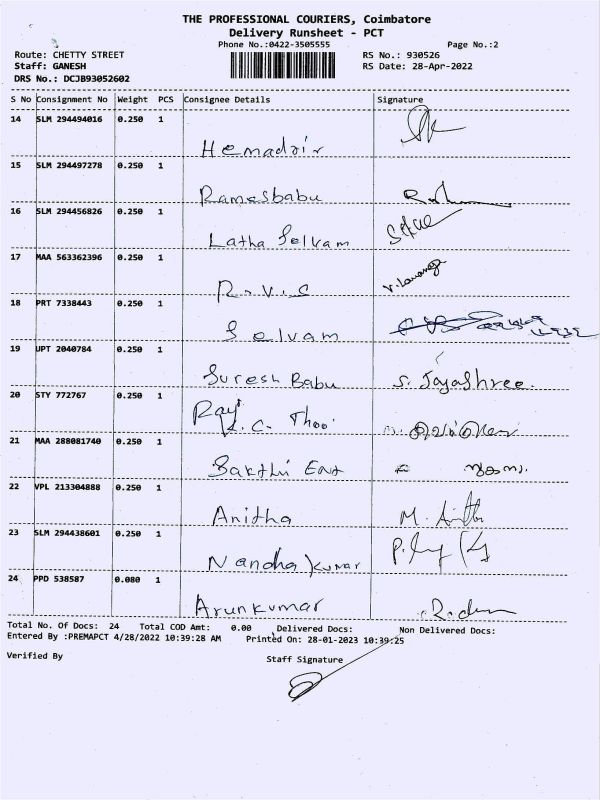 THE PROFESSIONAL COURIERS, Coimbatore
Delivery Runsheet - PCT
Phone No.:0422-3505555 Page No.:2
Route: CHETTY STREET RS No.: 930526
Staff: GANESH RS Date: 28-Apr-2022
DRS No.: DCJB93052602
S No Consignment No Weight PCS Consignee Details Signature
14 SLM 294494016 0.250 1
15 SLM 294497278 0.250 1
Ramesbabu
16 SLM 294456826 0.250 1
Latha Selvam
17 MAA 563362396 0.250 1
18 PRT 7338443 0.250 1
Selvam
19 UPT 2040784 0.250 1
Suresh Babu S. Jayashree.
20 STY 772767 0.250 1
21 MAA 288081740 0.250 1
Sakthi Ent
22 VPL 213304888 0.250 1
Anitha
23 SLM 294438601 0.250 1
Nandha kumar
24 PPD 538587 0.080 1
Arunkumar
Total No. Of Docs: 24 Total COD Amt: 0.00 Delivered Docs: Non Delivered Docs:
Entered By :PREMAPCT 4/28/2022 10:39:28 AM Printed On: 28-01-2023 10:39:25
Verified By Staff Signature